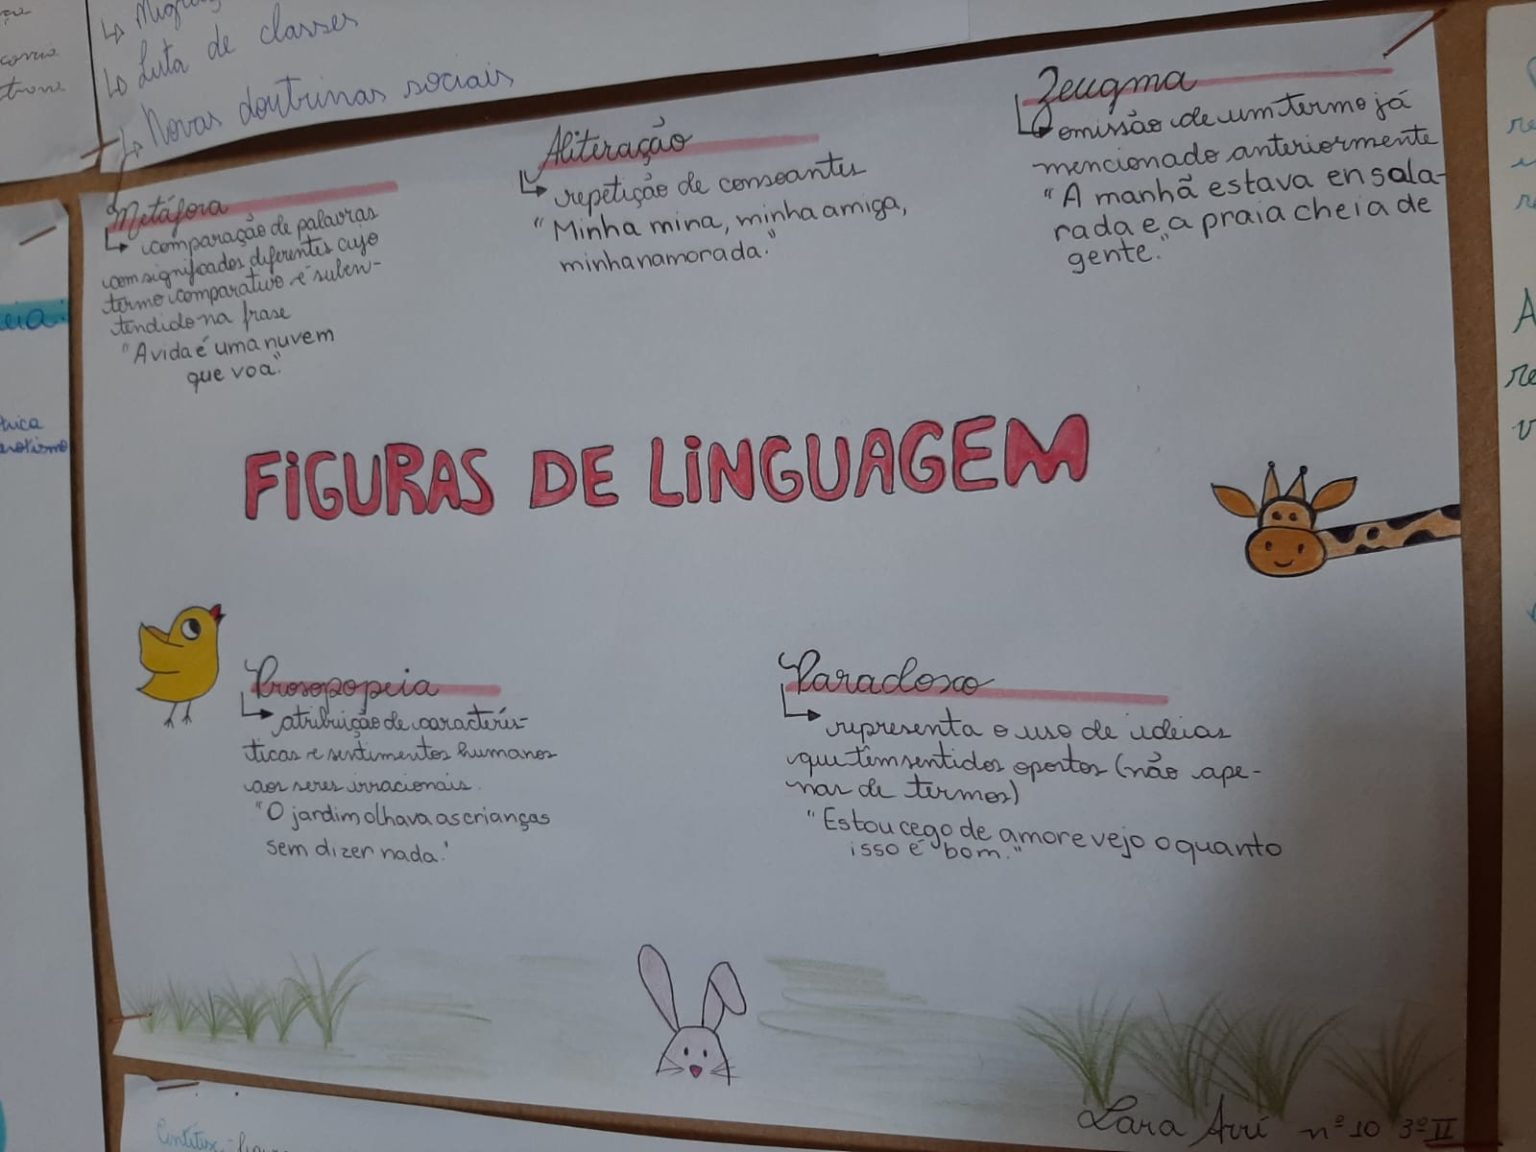 ↳ Luta de classes
↳ Novas doutrinas sociais
Metáfora
↳ comparação de palavras
com significados diferentes cujo
termo comparativo é suben-
tendido na frase
"A vida é uma nuvem
que voa."
Aliteração
↳ repetição de consoantes
"Minha mina, minha amiga,
minha namorada."
Zeugma
↳ omissão de um termo já
mencionado anteriormente
"A manhã estava ensola-
rada e a praia cheia de
gente."
FIGURAS DE LINGUAGEM
Prosopopeia
↳ atribuição de caracterís-
ticas e sentimentos humanos
aos seres irracionais.
"O jardim olhava as crianças
sem dizer nada."
Paradoxo
↳ representa o uso de ideias
que têm sentidos opostos (não ape-
nas de termos)
"Estou cego de amor e vejo o quanto
isso é bom."
Lara nº 10 3º II